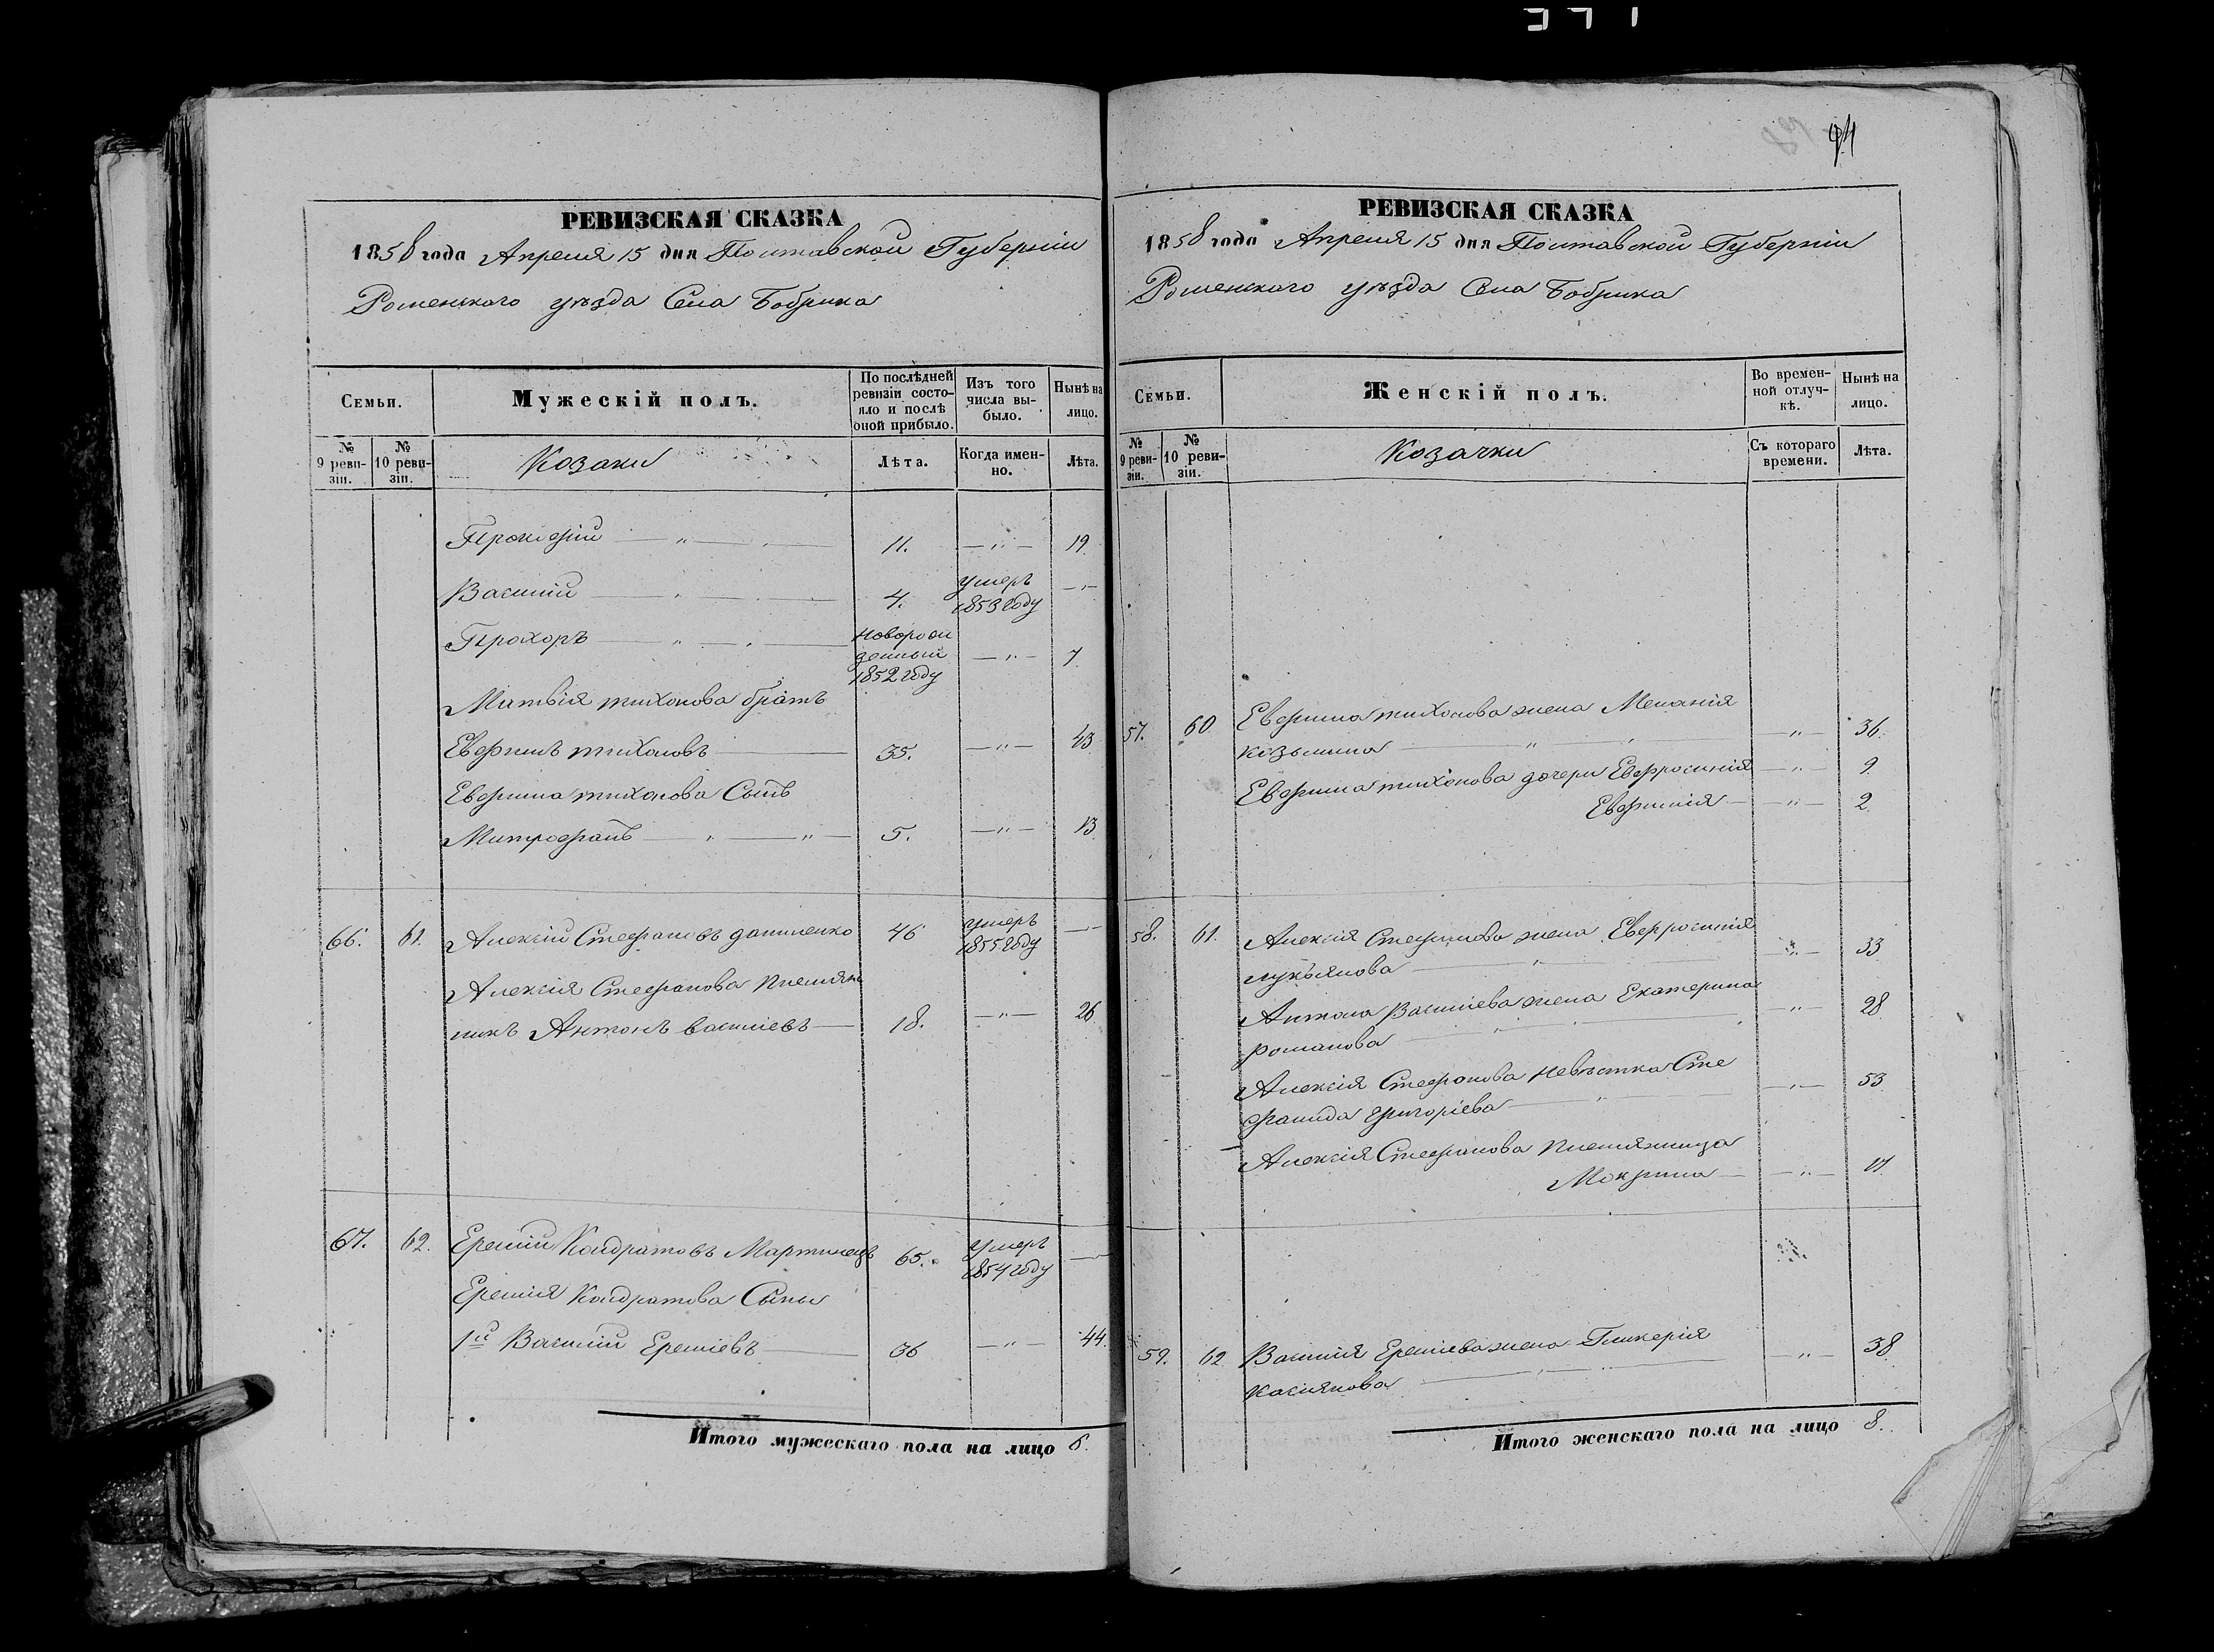 94
РЕВИЗСКАЯ СКАЗКА
1858 года Апреля 15 дня Полтавской Губерніи
Роменского уѣзда Села Бобрика
Семьи.
Мужескій полъ.
По послѣдней ревизіи состояло и послѣ оной прибыло.
Изъ того числа выбыло.
Нынѣ на лицо.
№ 9 ревизіи.
№ 10 ревизіи.
Козаки
Лѣта.
Когда именно.
Лѣта.
Прокофій — " — 11. — " — 19
Василій — " — 4. умеръ 1853 году — " —
Прохоръ — " — новорожденный 1852 году — " — 7
Матвія тихонова братъ
Евфимъ тихоновъ — 35. — " — 43
Евфима тихонова Сынъ
Митрофанъ — " — " — 5. — " — 13
66. 61. Алексій Стефановъ даниленко 46 умеръ 1855 году — " —
Алексія Стефанова племян
никъ Антонъ василіевъ — 18. — " — 26
67. 62. Еремій Кондратовъ Мартинецъ 65. умеръ 1854 году — " —
Еремія Кондратова Сыны
1й Василій Ереміевъ — 36 — " — 44.
Итого мужескаго пола на лицо 6.
РЕВИЗСКАЯ СКАЗКА
1858 года Апреля 15 дня Полтавской Губерніи
Роменского уѣзда Села Бобрика
Семьи.
Женскій полъ.
Во временной отлучкѣ.
Нынѣ на лицо.
№ 9 ревизіи.
№ 10 ревизіи.
Козачки
Съ котораго времени.
Лѣта.
57. 60 Евфима тихонова жена Меланія
козьмина — " — " — 36.
Евфима тихонова дочери Евфросинія — " — 9
Евфимія — " — 2
58. 61. Алексія Стефанова жена Евфросинія
лукьянова — " — 33
Антона Василіева жена Екатерина
романова — " — 28
Алексія Стефанова невѣстка Сте
фанида григоріева — " — 53
Алексія Стефанова племянница
Мокрина — " — 17
59. 62 Василія Ереміева жена Гликерія
касиянова — " — 38
Итого женскаго пола на лицо 8.